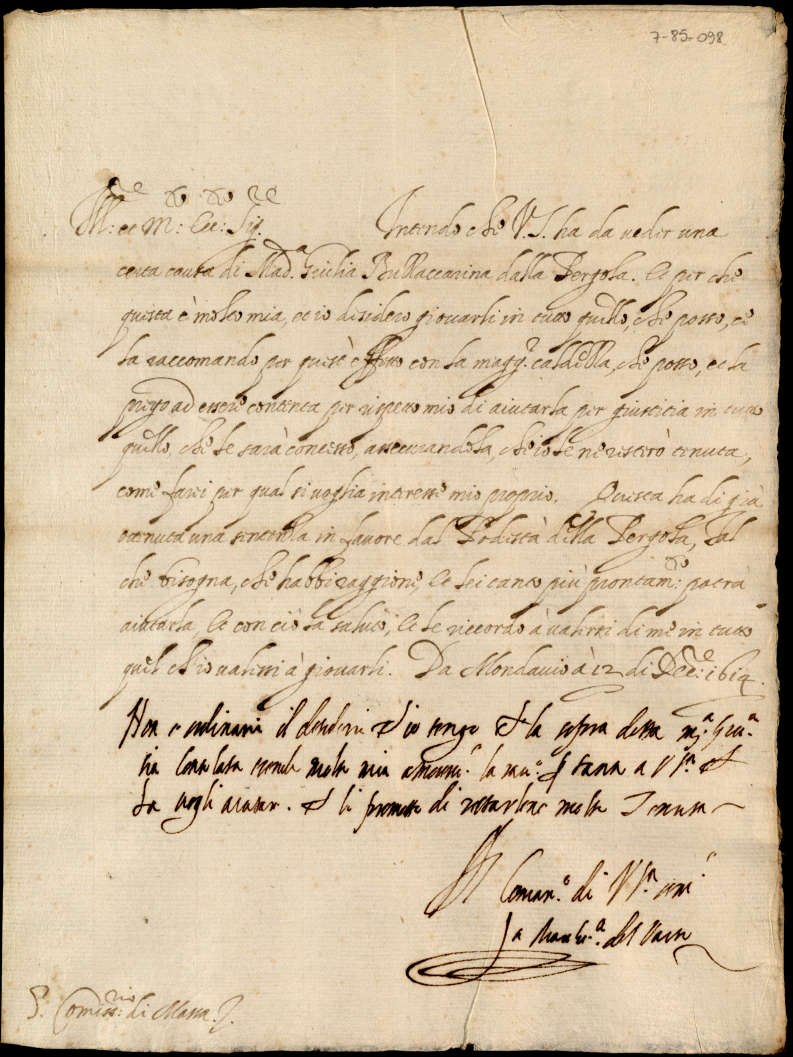 7-85-098
M:to et M:to Ecc:te Sig:re Intendo che V.S. ha da veder una
certa causa di Mad.a Giulia Bullaccarina dalla Pergola. Et per che
questa è molto mia, et io desidero giovarli in tutto quello, che posso, ce
la raccomando per questo effetto con la magg.r caldezza, che posso, et la
prego ad essere contenta per rispetto mio di aiutarla per giustitia in tutto
quello, che le sarà concesso, assecurandola, che io le ne resterò tenuta,
come farei per qual si voglia interesse mio proprio. Questa ha di già
ottenuta una sentenza in favore dal Podestà della Pergola, tal
che bisogna, che habbi raggione, et lei tanto più prontam:te potrà
aiutarla, et con ciò la saluto, et le riccordo à valersi di me in tutto
quel ch'io valessi à giovarli. Da Mondavio à 12 di Xbre: 1614.
Non è ordinario il desiderio ch'io tengo che la sopra detta m.a Giu.a
sia consolata essendo molto mia
la vogli aiutar. et li prometto di restarlene molto Tenuta
Coman.o di V S.ra
la March.a del Vasto
S. Comiss:rio di Massa